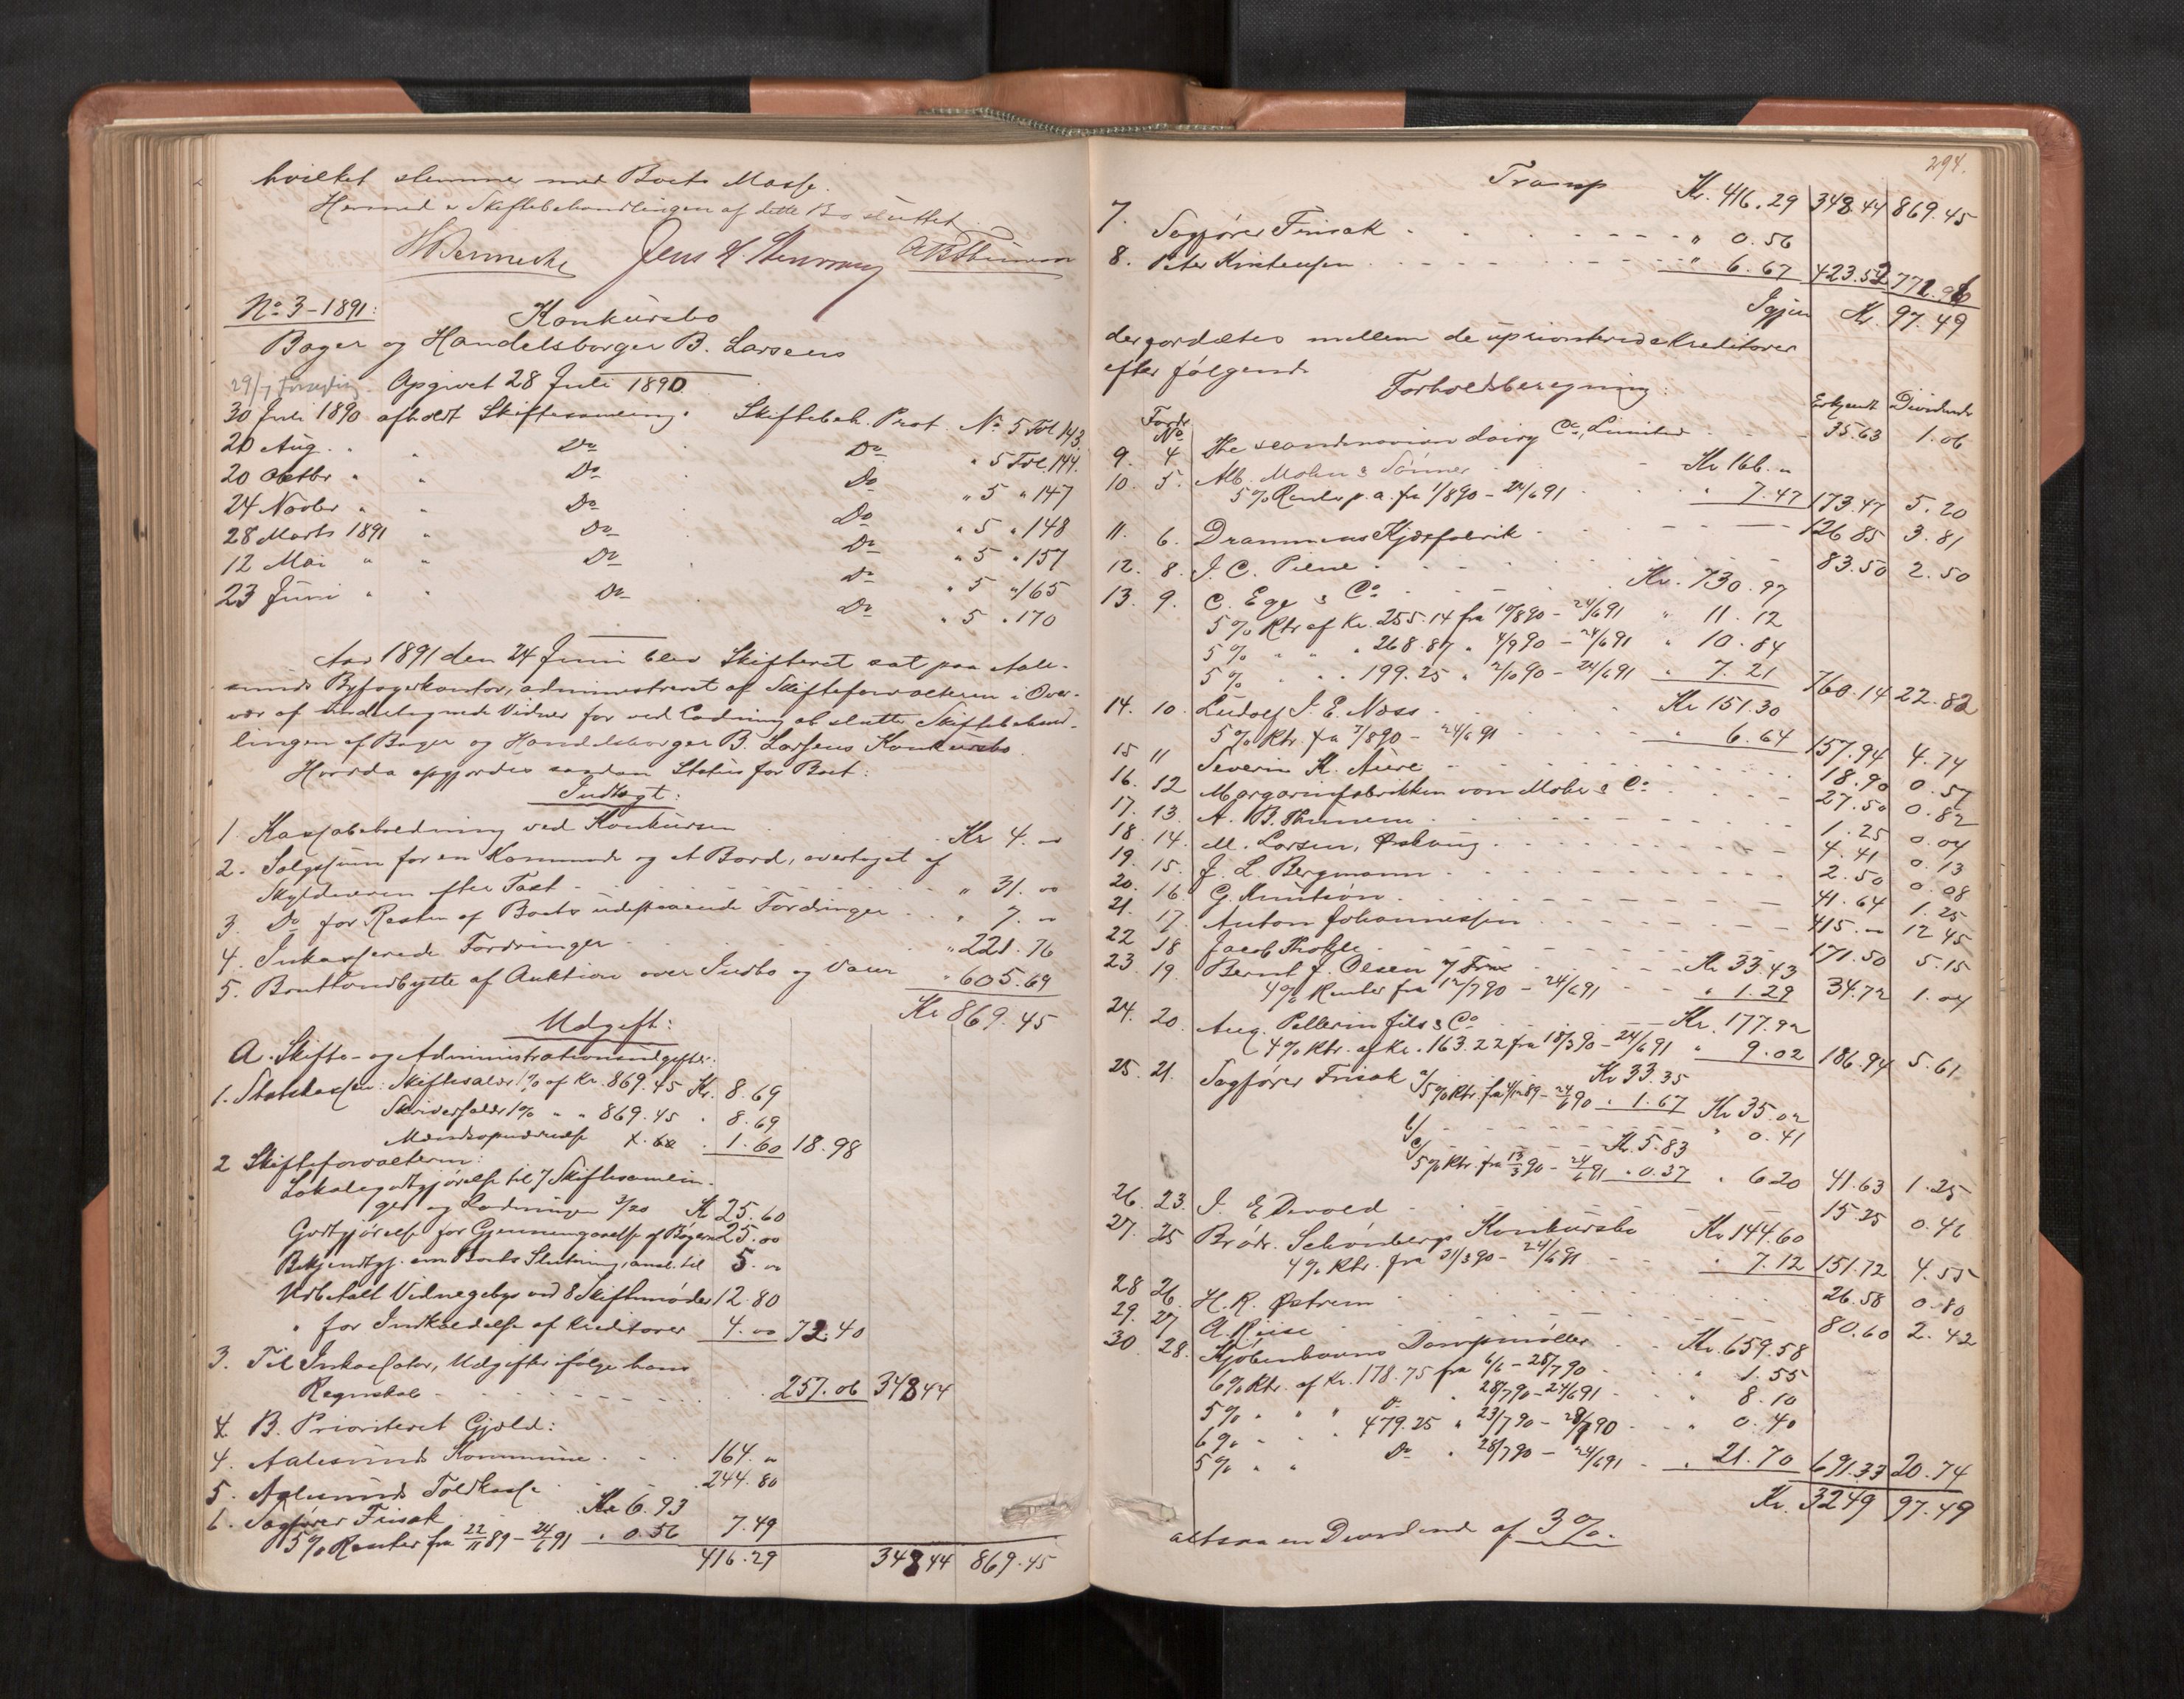 hvilket stemmer med Boets Masse.
Hermed er Skiftebehandlingen af dette Bo sluttet.
No 3-1891: Konkursbo
Bager og Handelsborger B. Larsens
29/7 Forsegling. Opgivet 28 Juli 1890.
30 Juli 1890 afholdt Skiftesamling. Skiftebeh. Prot No 5 Fol 143
20 Aug. " " Do Do " 5 Fol 144.
20 Oktbr " " Do Do " 5 " 147
24 Novbr " " Do Do " 5 " 148
28 Marts 1891 " Do Do " 5 " 157
12 Mai " " Do Do " 5 " 165
23 Juni " " Do Do " 5 " 170
Aar 1891 den 24 Juni blev Skifteret sat paa Aale-
sunds Byfogedkontor, administreret af Skifteforvalteren i Over-
vær af undertegnede Vidner for ved Lodning at slutte Skiftebehand-
lingen af Bager og Handelsborger B. Larsens Konkursbo.
Hvorda opgjordes saadan Status for Boet:
Indtægt:
1. Kassabeholdning ved Konkursen Kr 4. "
2. Salgssum for en Kommode og et Bord, overtaget af
Skyldneren efter Taxt " 31. 00
3. Do for Resten af Boets udestaaende Fordringer " 7. "
4. Inkasserede Fordringer " 221.76
5. Bruttoudbytte af Auktion over Indbo og Varer " 605.69
Kr 869.45
Udgift:
A. Skifte- og Administrationsudgifter:
1. Statskassen: Skiftesalær 1% af Kr. 869.45 Kr. 8.69
Skriversalær 1% " " 869.45 " 8.69
1.60 18.98
2 Skifteforvalteren:
Lokalegodtgjørelse til 7 Skiftesamlin-
ger og Lodningen 3/20 Kr 25.60
Godtgjørelse for Gjennemgaaelse af Bøgerne 25.00
Bekjendtgj. om Boets Slutning, ansl. til 5. "
Udbetalt Vidnegebyr ved 8 Skiftemøder 12.80
" for Indkaldelse af Kreditorer 4.00 72.40
3. Til Inkassator, Udgifter ifølge hans
Regnskab 257.06 348.44
B. Prioriteret Gjæld:
4. Aalesunds Kommune 164. "
5. Aalesunds Toldkasse 244.80
6. Sagfører Frisak Kr 6.93
5% Renter fra 22/11 89 - 24/6 91 " 0.56 7.49
416.29 348.44 869.45
294.
Transp Kr. 416.29 348.44 869.45
7. Sagfører Frisak " 0.56
8. Peter Kristensen " 6.67 423.52 771.96
Igjen Kr. 97.49
der fordeles mellem de upriorterede Kreditorer
efter følgende
Forholdsberegning:
Fordr. No Erkjendt Dividende
9. 4 The scandinavian dairy Co, Limited 35.63 1.06
10. 5. Alb. Mohn & Sønner Kr 166. "
5% Renter p. a. fra 1/8 90 - 24/6 91 " 7.47 173.47 5.20
11. 6. Drammens Kjæxfabrik 126.85 3.81
12. 8. I. C. Piene 83.50 2.50
13. 9. C. Ege & Co Kr. 730.97
5% Rtr af Kr. 255.14 fra 10/8 90 - 24/6 91 " 11.12
5% " " " 268.87 " 4/9 90 - 24/6 91 " 10.84
5% " " " 199.25 " 2/10 90 - 24/6 91 " 7.21 760.14 22.82
14. 10. Ludolf I. E. Næss Kr 151.30
5% Rtr. fra 7/8 90 - 24/6 91 " 6.64 157.94 4.74
15 11 Severin K. Aure 18.90 0.57
16. 12 Margarinfabrikken von Møbe & Co 27.50 0.82
17. 13. A. B. Thunem 1.25 0.04
18. 14. M. Larsen, Ørskoug 4.41 0.13
19. 15. J. L. Bergmann 2.50 0.08
20. 16. G. Knutson 41.64 1.25
21. 17. Anton Johannessen 415. " 12.45
22 18 Jacob Thoxle 171.50 5.15
23 19. Bernt J. Olsen Kr 33.43
4% Renter fra 12/7 90 - 24/6 91 " 1.29 34.72 1.04
24. 20. Aug. Pellerin fils & Co Kr. 177.92
4% Rtr. af Kr. 163.22 fra 10/3 90 - 24/6 91 " 9.02 186.94 5.61
25. 21. Sagfører Frisak a/ Kr 33.35
5% Rtr. fra 4/12 89 - 24/6 90 " 1.67 Kr 35.02
b/ " 0.41
c/ Kr. 5.83
5% Rtr. fra 13/3 90 - 24/6 91 " 0.37 " 6.20 41.63 1.25
26. 23. I. E. Devold 15.25 0.46
27. 25 Brødr. Schönbergs Konkursbo Kr 144.60
4% Rtr. fra 31/3 90 - 24/6 91 " 7.12 151.72 4.55
28 26. H. R. Østrem 26.58 0.80
29. 27 A. Reise 80.60 2.42
30 28. Kjøbenhavns Dampmøller Kr. 659.58
6% Rtr. af Kr. 178.75 fra 6/6 - 28/7 90 " 1.55
5% " " " Do " 28/7 90 - 24/6 91 " 8.10
6% " " " 479.25 " 23/7 90 - 28/7 90 " 0.40
5% " " Do " 28/7 90 - 24/6 91 " 21.70 691.33 20.74
Kr. 3249 97.49
altsaa en Dividende af 3%.